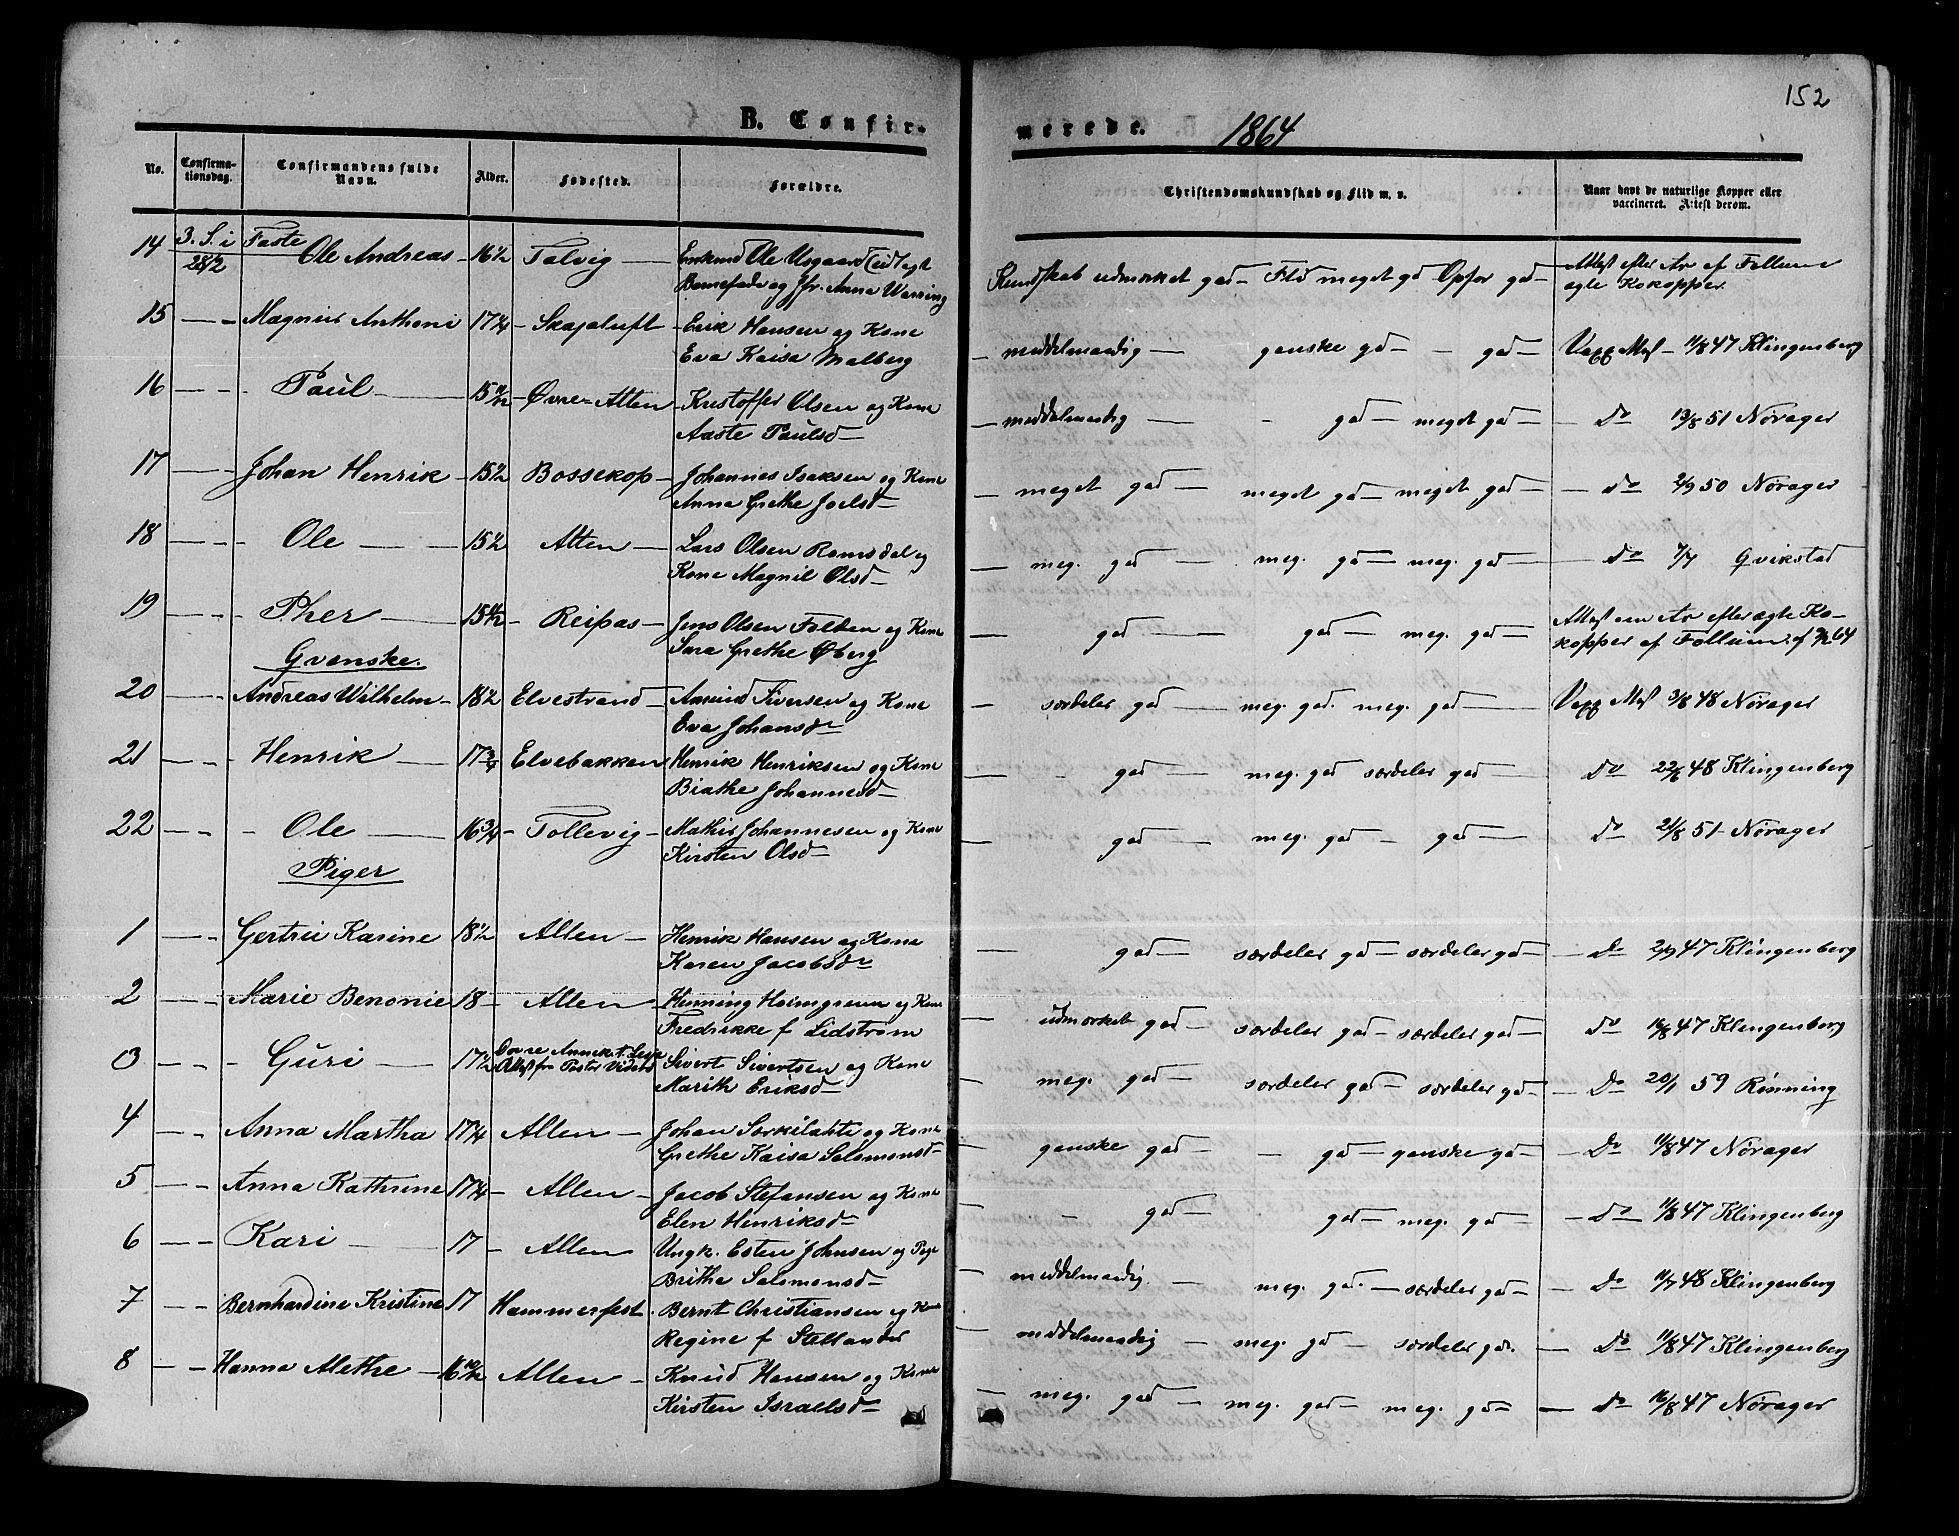 152
B. Confir-
merede. 1864
No.
Confirma-
tionsdag.
Confirmandens fulde
Navn.
Alder.
Fødested.
Forældre.
Christendomskundskab og Flid m. v.
Naar havt de naturlige Kopper eller
vaccineret. Attest derom.
14 3. S. i Faste Ole Andreas 16½ Talvig Enkmd Ole Usgaard
28/2 og Jfr. Anna Warring
Kundskab udmærket god Flid meget gd Opfør gd Attest efter Ar af Follum
ægte Kokopper
15 Magnus Anthoni 17¼ Skajaluft Erik Hansen og Kone
Eva Kaisa Malberg
middelmaadig ganske gd gd Vacc Attest 11/8 47 Klingenberg
16 Paul 15 11/12 Øvre-Alten Kristoffer Olsen og Kone
Aaste Paulsd
middelmaadig god meget god Do 13/8 51 Nørager
17 Johan Henrik 15½ Bossekop Johannes Isaksen og Kone
Anna Grethe Joelsd
meget god meget gd meget god Do 2/9 50 Nørager
18 Ole 15½ Alten Lars Olsen Romsdal og
Kone Magnil Olsd
meg. god meg. gd meg. god Do 7/7 Qvikstad
19 Pher Reipas Jens Olsen Folden og Kone
Sara Grethe Øberg
god god meg. god Attest om Ar efter ægte Ko-
kopper af Follum af 64
Qvænske.
20 Andreas Wilhelm 18½ Elvestrand Amund Iversen og Kone
Eva Johansd
særdeles god meg. god. meg. god Vacc Attest 3/8 48 Nørager
21 Henrik 17¾ Elvebakken Henrik Henriksen og Kone
Birthe Johannesd
god meg. god særdeles god Do 22/6 48 Klingenberg
22 Ole 16¾ Tollevig Mathis Johannesen og Kone
Kirsten Olsd
god meg. god god Do 21/8 51 Nørager
Piger
1 Gertrui Karine 18½ Alten Henrik Hansen og Kone
Karen Jacobsdr
god særdeles god særdeles god Do 2/9 47 Klingenberg
2 Marie Benonie 18 Alten Henning Holmgreen og Kone
Fredrikke f Lidstrøm
udmærket god særdeles god særdeles god Do 16/8 47 Klingenberg
3 Guri 17½ Dovre Annex t. Lesje Sivert Sivertsen og Kone
Attest fra Pastor Marith Eriksd
meg. god særdeles god særdeles god Do 20/1 59 Rønning
4 Anna Martha 17¼ Alten Johan Særkilahti og Kone
Grethe Kaisa Salomonsd
ganske god god ganske gd Do 11/8 47 Nørager
5 Anna Kathrine 17¼ Alten Jacob Stefansen og Kone
Elen Henriksd
god god meg. god Do 11/8 47 Klingenberg
6 Kari 17 Alten Ungk. Esten Johnsen og Pige
Britha Salomonsd
middelmaadig meg. god. særdeles god Do 11/7 48 Klingenberg
7 Bernhardine Kristine 17 Hammerfest Bernt Christiansen og Kone
Regine f Stellander
middelmaadig meg. gd særdeles god. Do 11/8 47 Klingenberg
8 Hanna Alethe 16 10/12 Alten Knud Hansen og Kone
Kirsten Israelsd
meg. god meg. god meg. god Do 16/8 47 Nørager